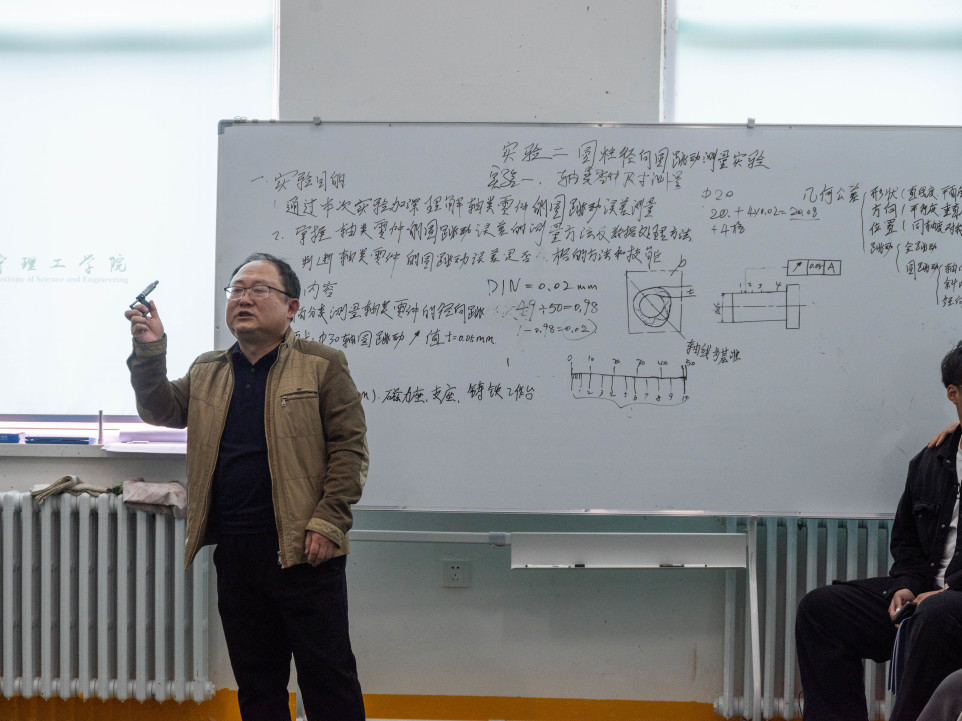 实验二 圆柱径向圆跳动测量实验
实验一、轴类零件尺寸测量
一 实验目的
1. 通过本次实验加深理解轴类零件侧圆跳动误差测量
2. 掌握轴类零件侧圆跳动误差的测量方法及数据处理方法
判断轴类零件的圆跳动误差是否 格的方法和技能
内容
分类测量轴类零件的径向跳
Φ30轴圆跳动 ↗ 值 t=0.05mm
磁力座、支座、铸铁工作台
DIN = 0.02 mm
49÷50=0.98
1-0.98=0.02
0 10 20 30 40 50
1 2 3 4 5 6 7 8 9 10
b
轴线为基准
Φ20
20 + 4×0.02 = 20.08
+4格
1 2 3 4
↗ 0.05 A
几何公差
形状(直线度 平面
方向(平行度 垂直
位置(同轴度 对称
跳动
全跳动
圆跳动
理工学院
of Science and Engineering